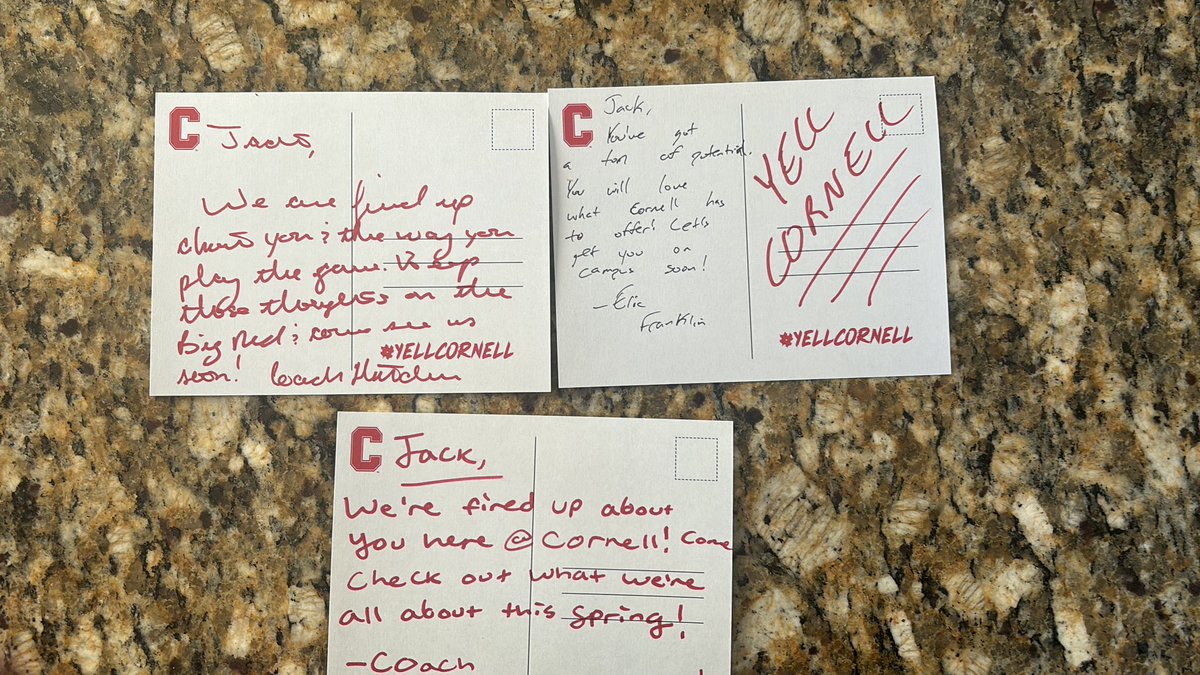 C
Jack,
We are fired up
about you & the way you
play the game. Keep
those thoughts on the
Big Red & come see us
soon! Coach
#YELLCORNELL
C
Jack,
You've got
a ton of potential.
You will love
what Cornell has
to offer! Let's
get you on
campus soon!
- Eric
Franklin
YELL
CORNELL
#YELLCORNELL
C
Jack,
We're fired up about
you here @ Cornell! Come
check out what we're
all about this spring!
- Coach